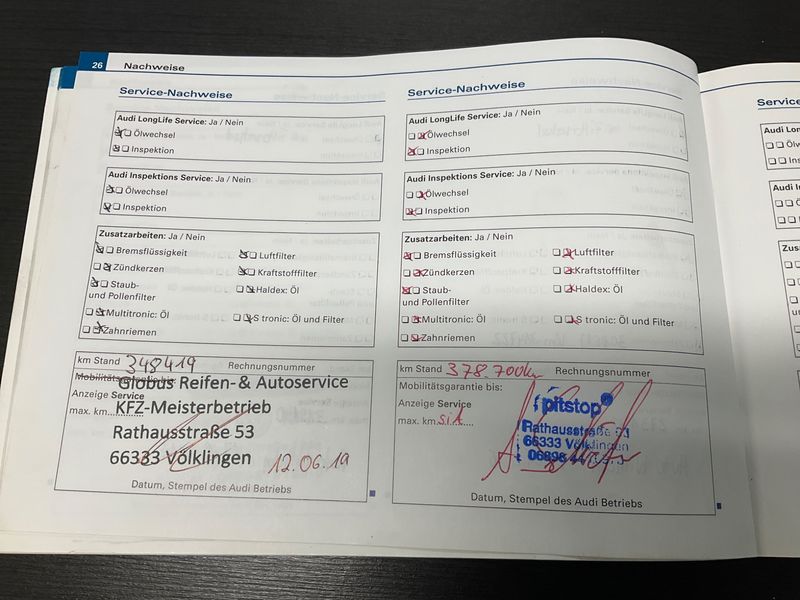 26 Nachweise
Service-Nachweise
Audi LongLife Service: Ja / Nein
Ölwechsel
Inspektion
Audi Inspektions Service: Ja / Nein
Ölwechsel
Inspektion
Zusatzarbeiten: Ja / Nein
Bremsflüssigkeit Luftfilter
Zündkerzen Kraftstofffilter
Staub- Haldex: Öl
und Pollenfilter
Multitronic: Öl S tronic: Öl und Filter
Zahnriemen
km Stand 348419 Rechnungsnummer
Mobilitätsgarantie bis:
Globus Reifen- & Autoservice
Anzeige Service
KFZ-Meisterbetrieb
max. km
Rathausstraße 53
66333 Völklingen
12.06.19
Datum, Stempel des Audi Betriebs
Service-Nachweise
Audi LongLife Service: Ja / Nein
Ölwechsel
Inspektion
Audi Inspektions Service: Ja / Nein
Ölwechsel
Inspektion
Zusatzarbeiten: Ja / Nein
Bremsflüssigkeit Luftfilter
Zündkerzen Kraftstofffilter
Staub- Haldex: Öl
und Pollenfilter
Multitronic: Öl S tronic: Öl und Filter
Zahnriemen
km Stand 378.700km Rechnungsnummer
Mobilitätsgarantie bis:
Anzeige Service
max. km
pitstop®
Rathausstraße
66333 Völklingen
06898
Datum, Stempel des Audi Betriebs
Service
Audi